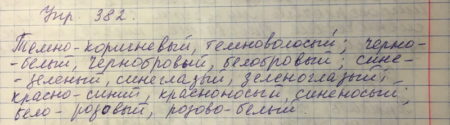 Упр 382.
Темно-коричневый, темноволосый; черно-
-белый, чернобровый, белобровый; сине-
-зеленый, синеглазый, зеленоглазый;
красно-синий, красноносый, синеносый;
бело-розовый, розово-белый.